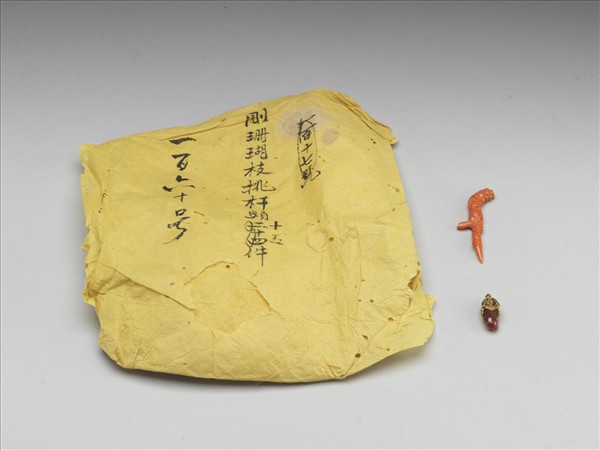 百十七號
剛珊瑚枝桃杆頭十五件
一百六十号